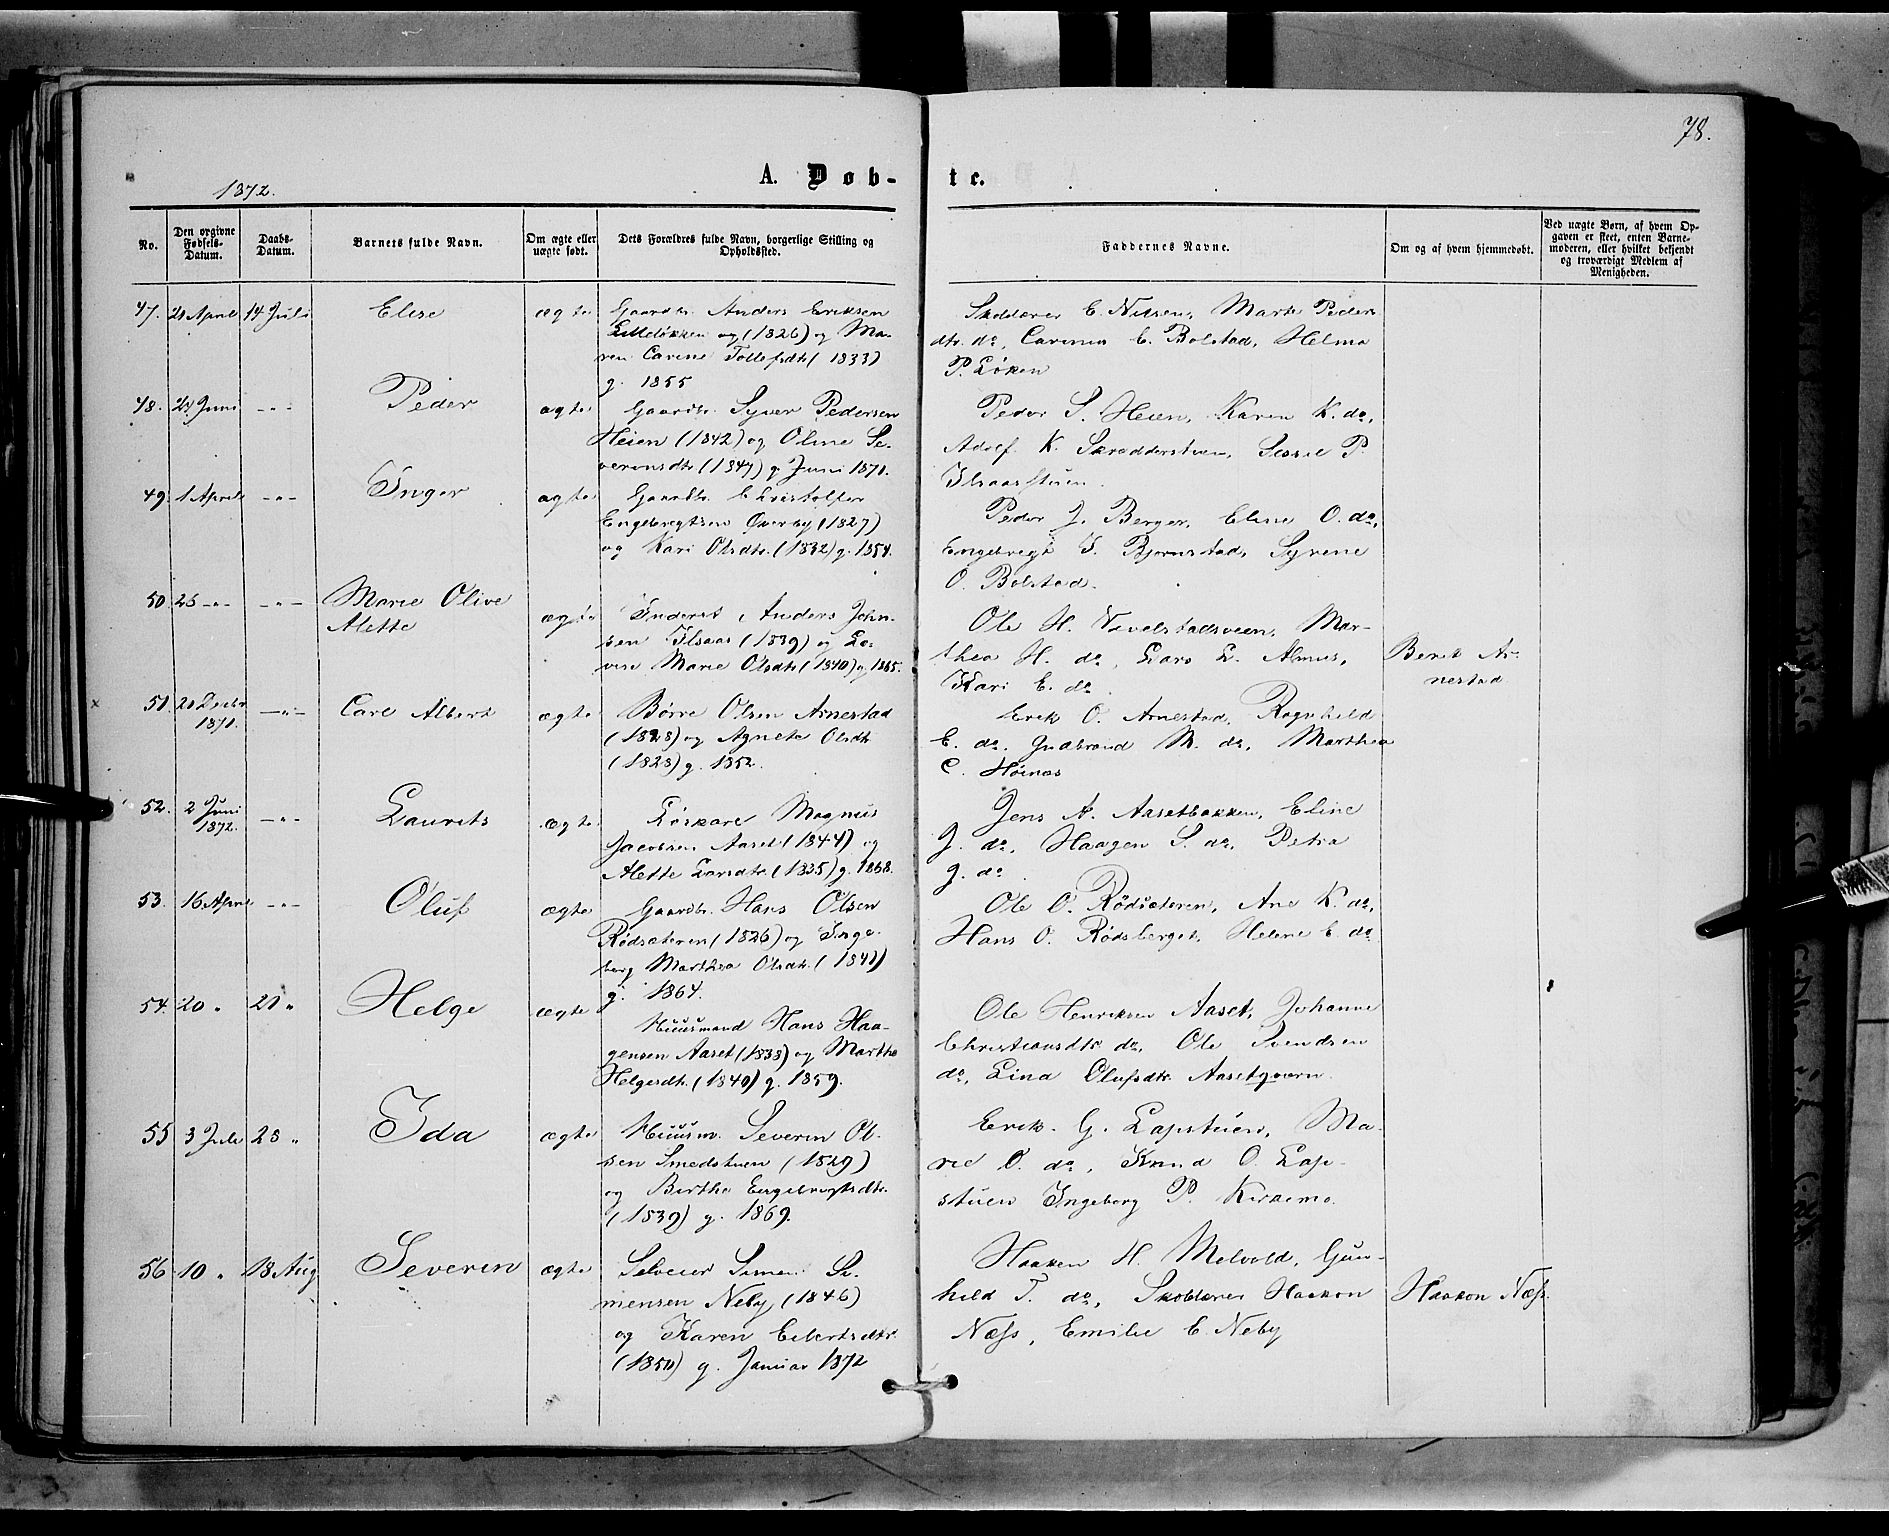 78.
1872.
A. Døb- te.
No. Den opgivne Fødsels-Datum. Daabs-Datum. Barnets fulde Navn. Om ægte eller uægte født. Dets Forældres fulde Navn, borgerlige Stilling og Opholdssted. Faddernes Navne. Om og af hvem hjemmedøbt. Ved uægte Børn, af hvem Opgaven er skeet, enten Barnemoderen, eller hvilket bekjendt og troværdigt Medlem af Menigheden.
47. 21 April 14 Juli Elise ægte Gaardbr. Anders Eriksen
Lilleløkken og (1826) og Ma-
ren Carine Tollefsdtr (1833)
g. 1855
Skolelærer E. Nilsen, Marte Peders
dtr. do, Carinus C. Bolstad, Helma
P. Løken
48. 24 Juni -"- Peder ægte Gaardbr. Syver Pedersen
Heien (1842) og Oline Se-
verensdtr (1847) g. Juni 1871.
Peder S. Heien, Karen K. do,
Adolf K. Skrædderstuen, Sissil P.
Ilsaasstuen.
49. 1 April -"- Inger ægte Gaardbr. Christoffer
Engebregtsen Øverby (1827)
og Kari Olsdtr. (1832) g. 1854.
Peder J. Berger, Eline O. do,
Engebregt S. Bjørnstad, Syrene
O. Bolstad.
50 25 -"- -"- Marie Olive
Alette ægte Inderst Anders John-
sen Ilsaas (1839) og Lo-
vise Marie Olsdtr (1840) g. 1865.
Ole H. Vevelstadsveen, Mar-
thea H. do, Lars L. Almus,
Kari E. do.
Berit Ar-
nestad
51. 20 Decbr
1871. -"- Carl Albert ægte Børre Olsen Arnestad
(1828) og Agnete Olsdtr
(1828) g. 1852.
Erik O. Arnestad, Ragnhild
E. do. Gudbrand M. do, Marthea
C. Høinæs
52. 2 Juni
1872. -"- Laurits ægte Løskarl Magnus
Jacobsen Aaset (1844) og
Alette Larsdtr. (1835) g. 1868.
Jens A. Aasetbakken, Eline
J. do, Haagen S. do, Petra
J. do.
53. 16 April -"- Oluf ægte Gaardbr. Hans Olsen
Rødsæteren (1826) og Inge-
borg Marthea Olsdtr. (1841)
g. 1864.
Ole O. Rødsæteren, Ane K. do,
Hans O. Rødsberget, Helene E. do
54. 20 " 21 " Helge ægte Huusmand Hans Haa-
gensen Aaset (1838) og Marthe
Helgesdtr. (1840) g. 1859.
Ole Henriksen Aaset, Johanne
Christiansdtr. do, Ole Svendsen
do, Lina Olufsdtr. Aasetgaarn
55 3 Juli 28 " Ida ægte Huusm. Severin Ol-
sen Smedstuen (1829)
og Birthe Engebregtsdtr.
(1839) g. 1869.
Erik G. Lapstuen, Ma-
rie O. do, Knud O. Lap-
stuen Ingeborg P.
56 10 " 18 Aug Severin ægte Selveier Simen Si-
mensen Neby (1846)
og Karen Eibertsdtr.
(1850) g. Januar 1872
Haaken H. Melvold, Gun-
hild T. do, Skolelærer Haakon
Næss, Emilie E. Neby
Haakon Næss.